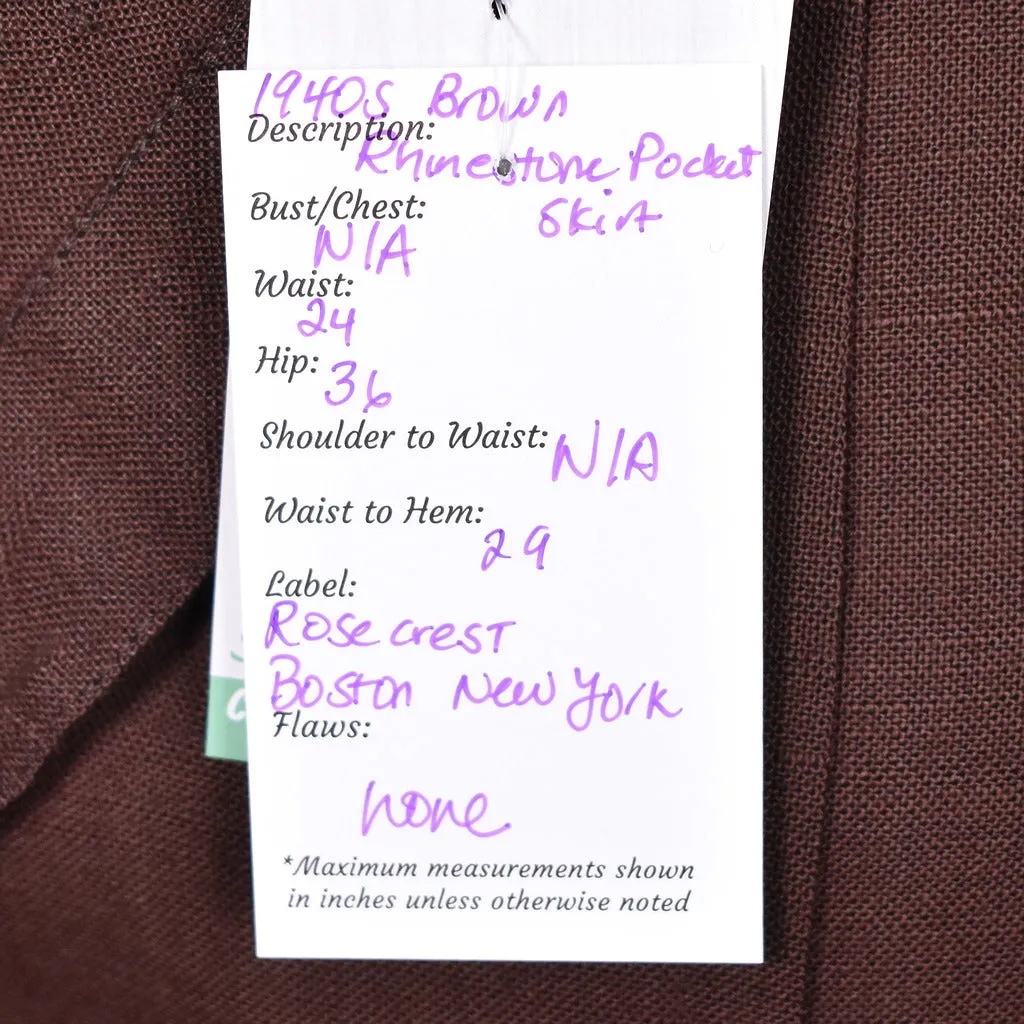 1940s Brown
Description:
Rhinestone Pocket
Bust/Chest:
Skirt
N/A
Waist:
24
Hip:
36
Shoulder to Waist: N/A
Waist to Hem:
29
Label:
Rosecrest
Boston New York
Flaws:
none
*Maximum measurements shown
in inches unless otherwise noted